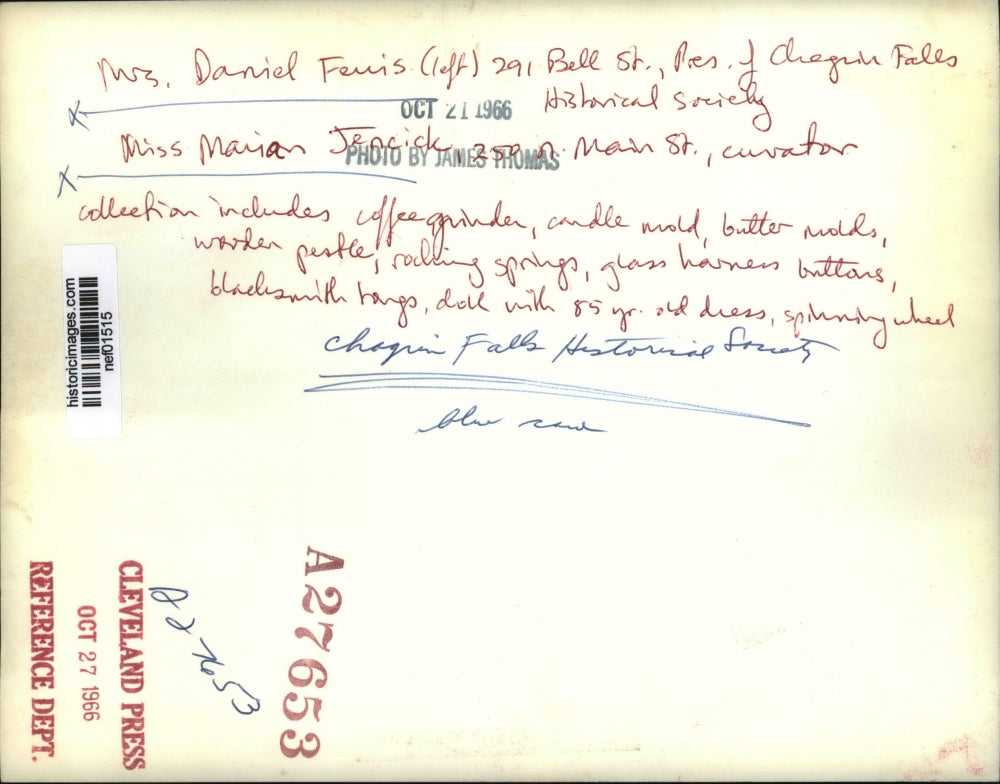 Mrs. Daniel Ferris (left) 291 Bell St., Pres. of Chagrin Falls
Historical Society
OCT 21 1966
Miss Marian Jencick, 250 N. Main St., curator
PHOTO BY JAMES THOMAS
collection includes coffee grinder, candle mold, butter molds,
wooden pestle, rocking springs, glass harness buttons,
blacksmith tongs, doll with 85 yr. old dress, spinning wheel
Chagrin Falls Historical Society
blue
historicimages.com
nef01515
A27653
CLEVELAND PRESS
OCT 27 1966
REFERENCE DEPT.